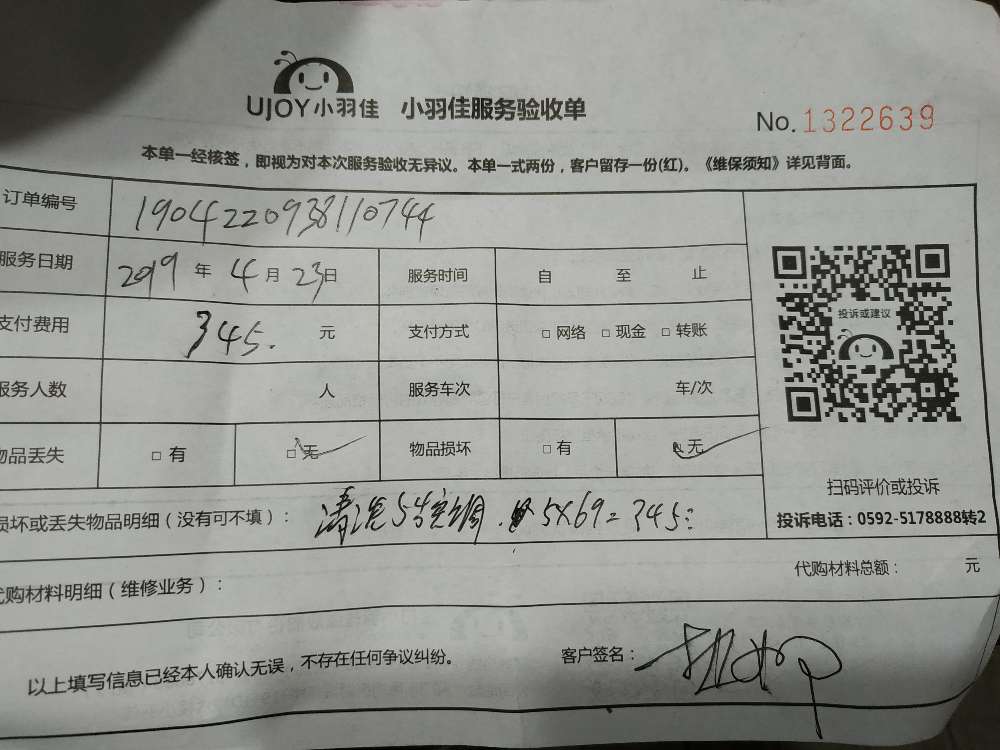 UJOY小羽佳 小羽佳服务验收单
No.1322639
本单一经核签，即视为对本次服务验收无异议。本单一式两份，客户留存一份(红)。《维保须知》详见背面。
订单编号 1904220938110744
服务日期 2019 年 4 月 23 日 服务时间 自 至 止
支付费用 345. 元 支付方式 □ 网络 □ 现金 □ 转账
投诉或建议
服务人数 人 服务车次 车/次
物品丢失 □ 有 □ 无 物品损坏 □ 有 □ 无
扫码评价或投诉
损坏或丢失物品明细（没有可不填）： 清洗5台空调. 5X69=345
投诉电话：0592-5178888转2
代购材料明细（维修业务）： 代购材料总额： 元
以上填写信息已经本人确认无误，不存在任何争议纠纷。 客户签名：